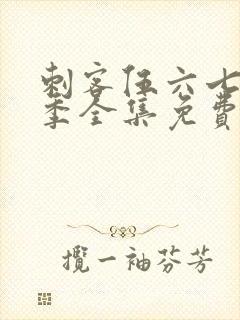 刺客伍六七
季全集免費
攬一袖芬芳